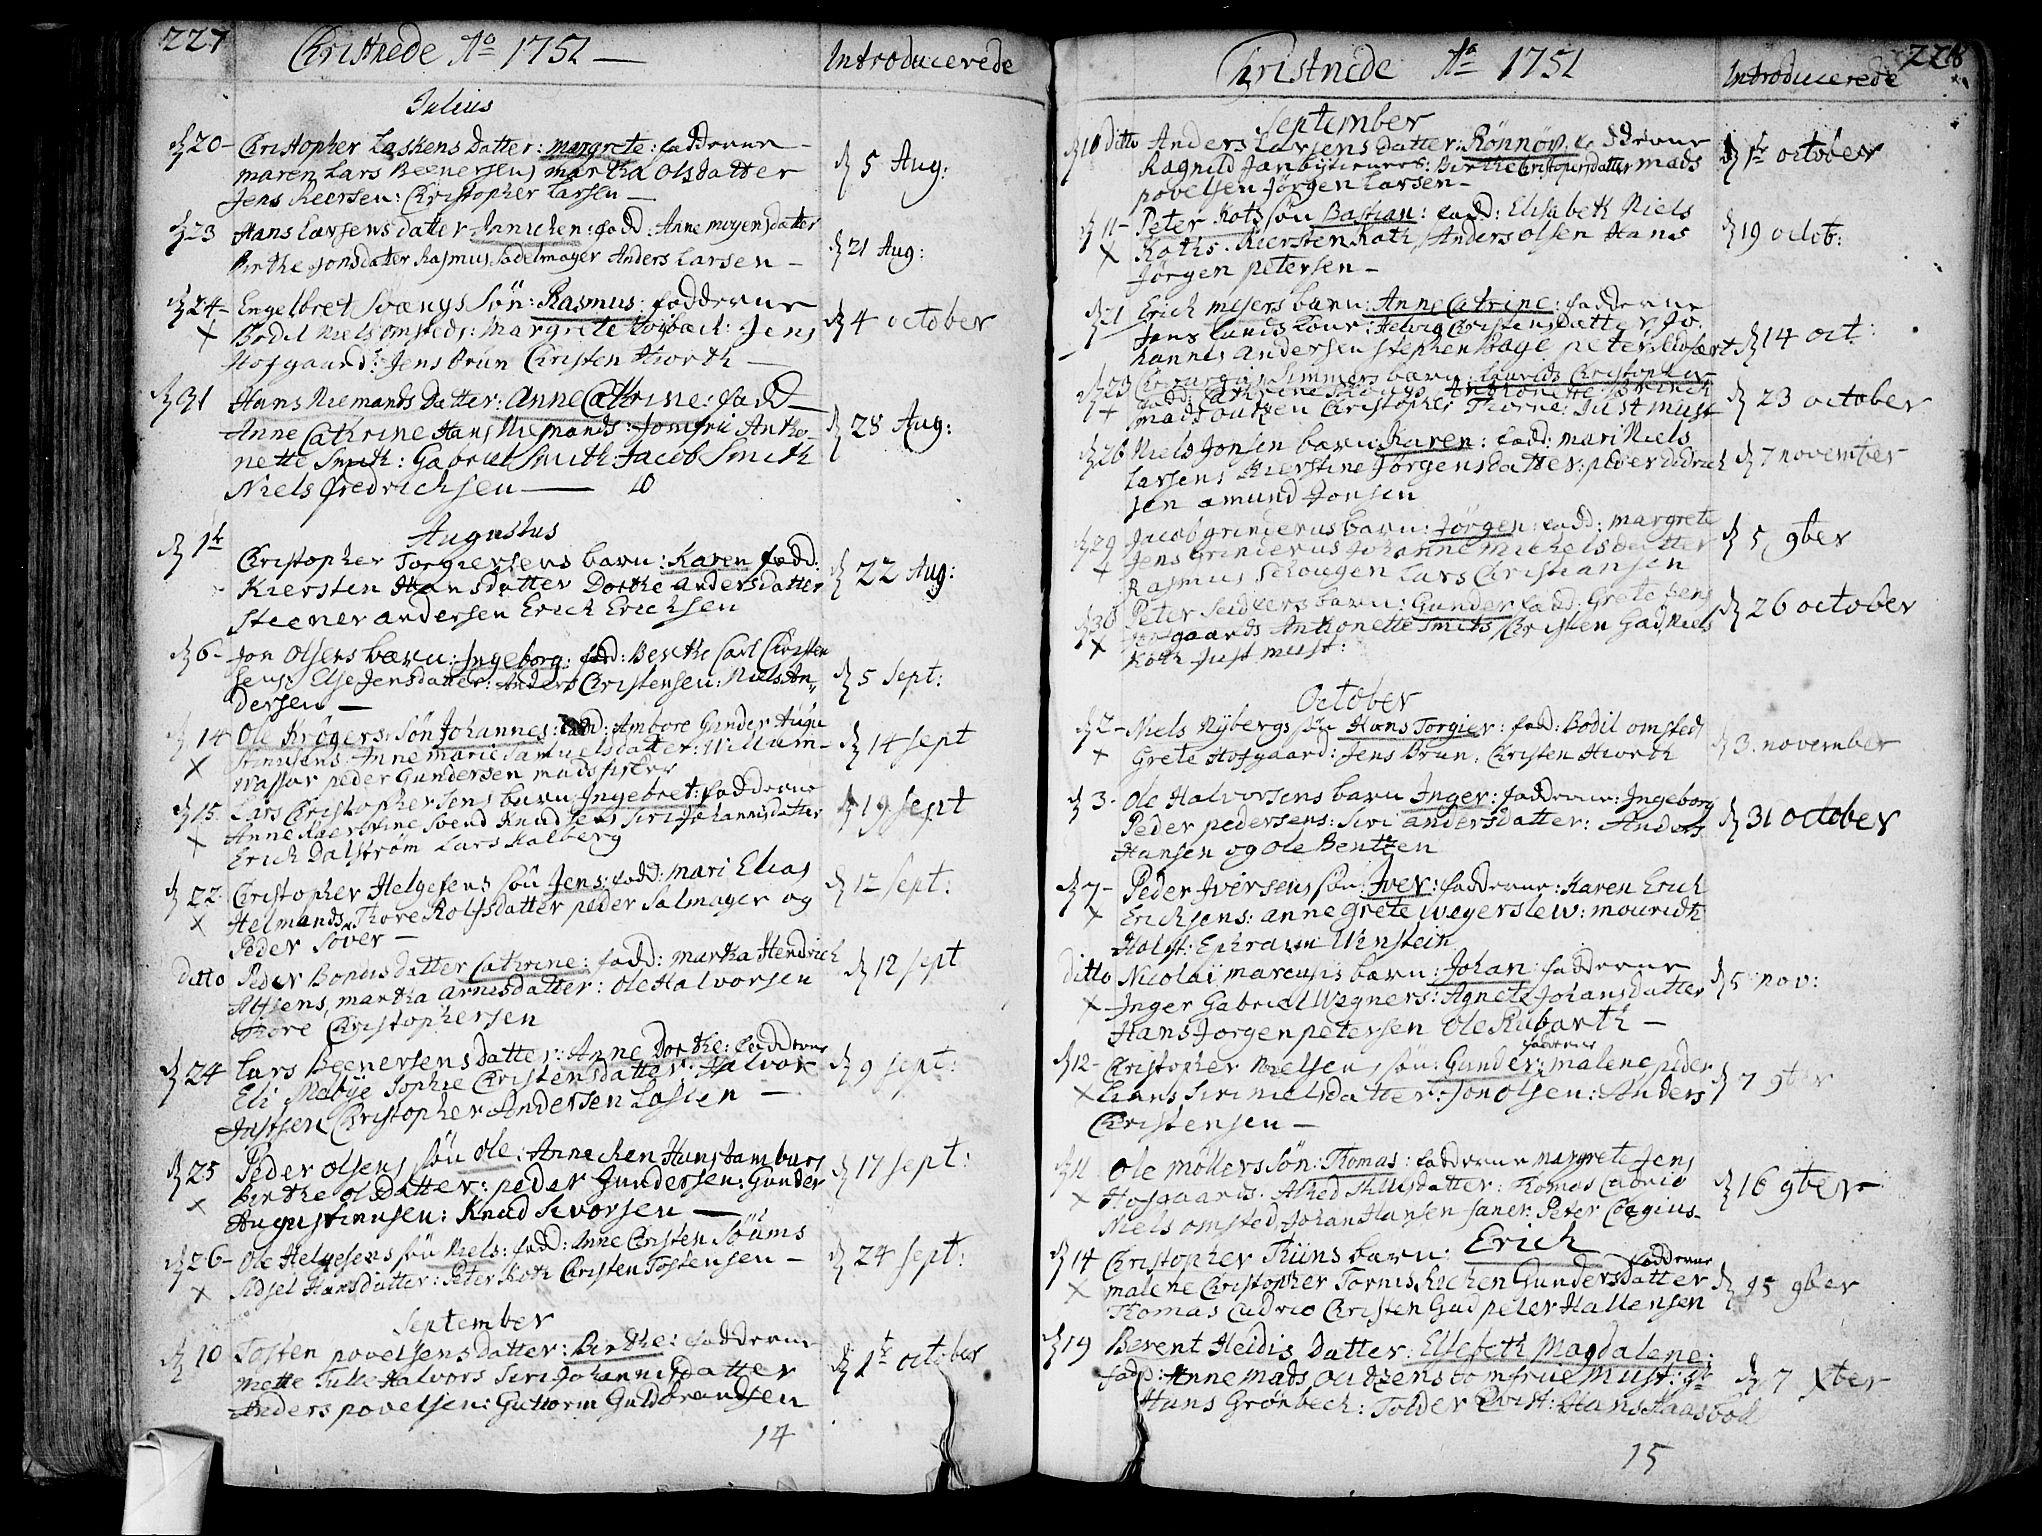 227
Christnede Ao 1751
Introducerede
Julius
20 Christopher Laskens Datter: margrete: fadderne
maren Lars Beenersens martha Olsdatter
Jens Reersen: Christopher Larsen
5 Aug:
23 Hans Larsens datter Annichen: fadd: Anne moyensdatter
Birthe jonsdatter Rasmus Sadelmager Anders Larsen
21 Aug:
24 Engelbret Svængs Søn: Rasmus: fadderne
Bodil Niels omsteds: Margrete Høyback: Jens
Hofgaard: Jens Brun Christen Hiorth
4 october
31 Hans Niemands Datter: Anne Cathrine: fadd
Anne Cathrine Hans Niemands: Jomfrü Antho-
nette Smith: Gabriel Smith Jacob Smith
Niels fredrichsen 10
28 Aug:
Augustus
1te Christopher Torgiersens barn: Karen fadd:
Kiersten Hansdatter Dorthe andersdatter
Steener andersen Erich Erichsen
22 Aug:
6 Jon Olsens barn: Ingeborg: fadd: Berthe Carl Christen
sens: Else Jensdatter: Anders Christensen: Niels An-
dersen
5 Sept:
14 Ole Krøgers Søn Johannes: fadd: Ambore Gunder Augu
stinusens: Anne marie Samuelsdatter: Willum
Wassar peder Gundersen mads fisker
14 Sept
15 Lars Christophersens barn Ingebret: fadderne
Anne Svend Knudsens Siri Johannisdatter
Erich Dalstrøm Lars Kalberg
19 Sept
22 Christopher Helgesens søn Jens: fadd: mari Elias
Helmands Thore Rolfsdatter peder Salmager og
Peder Sover
12 Sept:
ditto Peder Bondes datter Cathrine: fadd: martha Hendrich
Altsens, martha arnesdatter: Ole Halvorsen
Thore Christophersen
12 Sept
24 Lars Beenersens datter: Anne Dorthe: fadderne
Eli Mabye Sophie Christensdatter: Halvor
Justsen Christopher Andersen Lassen
9 Sept:
25 Peder olsens søn ole: Annichen Hans Hamburs
Birthe olsdatter: peder Gundersen: Gunder
Augustinusen: Knud Sivorsen
17 Sept:
26 Ole Helgesens søn Niels: fadd: Anne Christen Søüms
Sidsel Hansdatter: Peter Koth Christen Tostensen
24 Sept:
September
10 Tosten povelsens datter: Birthe: fadderne
mette Tulle Halvors Siri Johannisdatter
Anders povelsen: Guttorm Guldbrandsen
1te october
14
228
Christnede Ao 1751
Introducerede
September
10 Ditto Anders Larsens datter: Rønnøv: fadderne
Ragnild Jan Birthe Christophersdatter mads
povelsen Jørgen Larsen
1te october
11 Peter Kots søn Bastian: fadd: Elisabeth Niels
Koths. Kiersten Koth, Anders Olsen Hans
Jørgen petersen
19 octob:
21 Erich meyers barn: Anne Catrine: fadderne
Jens Lunds Kone: Helvig Christensdatter Jo-
hannes andersen Stephen Hage peter
14 oct:
23 Chirurgi Simmers barn: Laurids Christopher
fadd: Cathrine Anthonette Smith
mads outzen Christopher Thorne: Just must
23 october
26 Niels Jonsen barn: Karen: fadd: mari Niels
Larsens Kierstine Jørgensdatter: peder didrich
sen amund Jonsen
7 november
29 Jacob grinderus barn: Jørgen: fadd: margrete
Jens Grinderus Johanne Michelsdatter
Rasmus Schougen Lars Christiansen
5 9ber
30 Peter Seidlers barn: Gunder fadd: Grete Jens
Hofgaards Anthonette Smits, Christen Gad, Niels
Koth Just must:
26 october
October
2 Niels Nybergs søn Hans Torgier: fadd: Bodil omsted
Grete Hofgaard: Jens Brun, Christen Hiorth
3 november
3 Ole Halvorsens barn Inger: fadderne: Ingeborg
Peder pedersens: Siri andersdatter: Anders
Hansen og Ole Bentzen
31 october
7 Peder Iversens søn: Iver: fadderne: Karen Erich
Erichsens: anne grete Wegerslew: mouridth
Holst: Ephraim Unstein
ditto Nicolai marcusis barn: Johan: fadderne
Inger Gabriel Wegners: Agnete Johansdatter
Hans Jorgen petersen Ole Rubarth
5 nov:
12 Christopher Nielsens søn: Gunder: fadderne malene peder
Hans Siri nielsdatter: Jon olsen: Anders
Christensen
7 9ber
11 Ole møllers søn: Thomas: fadderne margrete Jens
Hofgaards. Alhed Skulsdatter: Thomas Cudrio
Niels omsted Johan Hansen Saner: Peter Coegius
16 9ber
14 Christopher Thüns barn: Erich fadderne
malene Christopher Tornis Kichen Gundersdatter
Thomas Cudrio Christen Gud peter Hallensen
25 9ber
19 Berent Heidis Datter: Elsebeth Magdalene:
fadd: Anne Mads outzens Jomfrue Must: Sr
Hans Grønbech: Tolder Qvist: Hans Aasvold
7 Xber
15